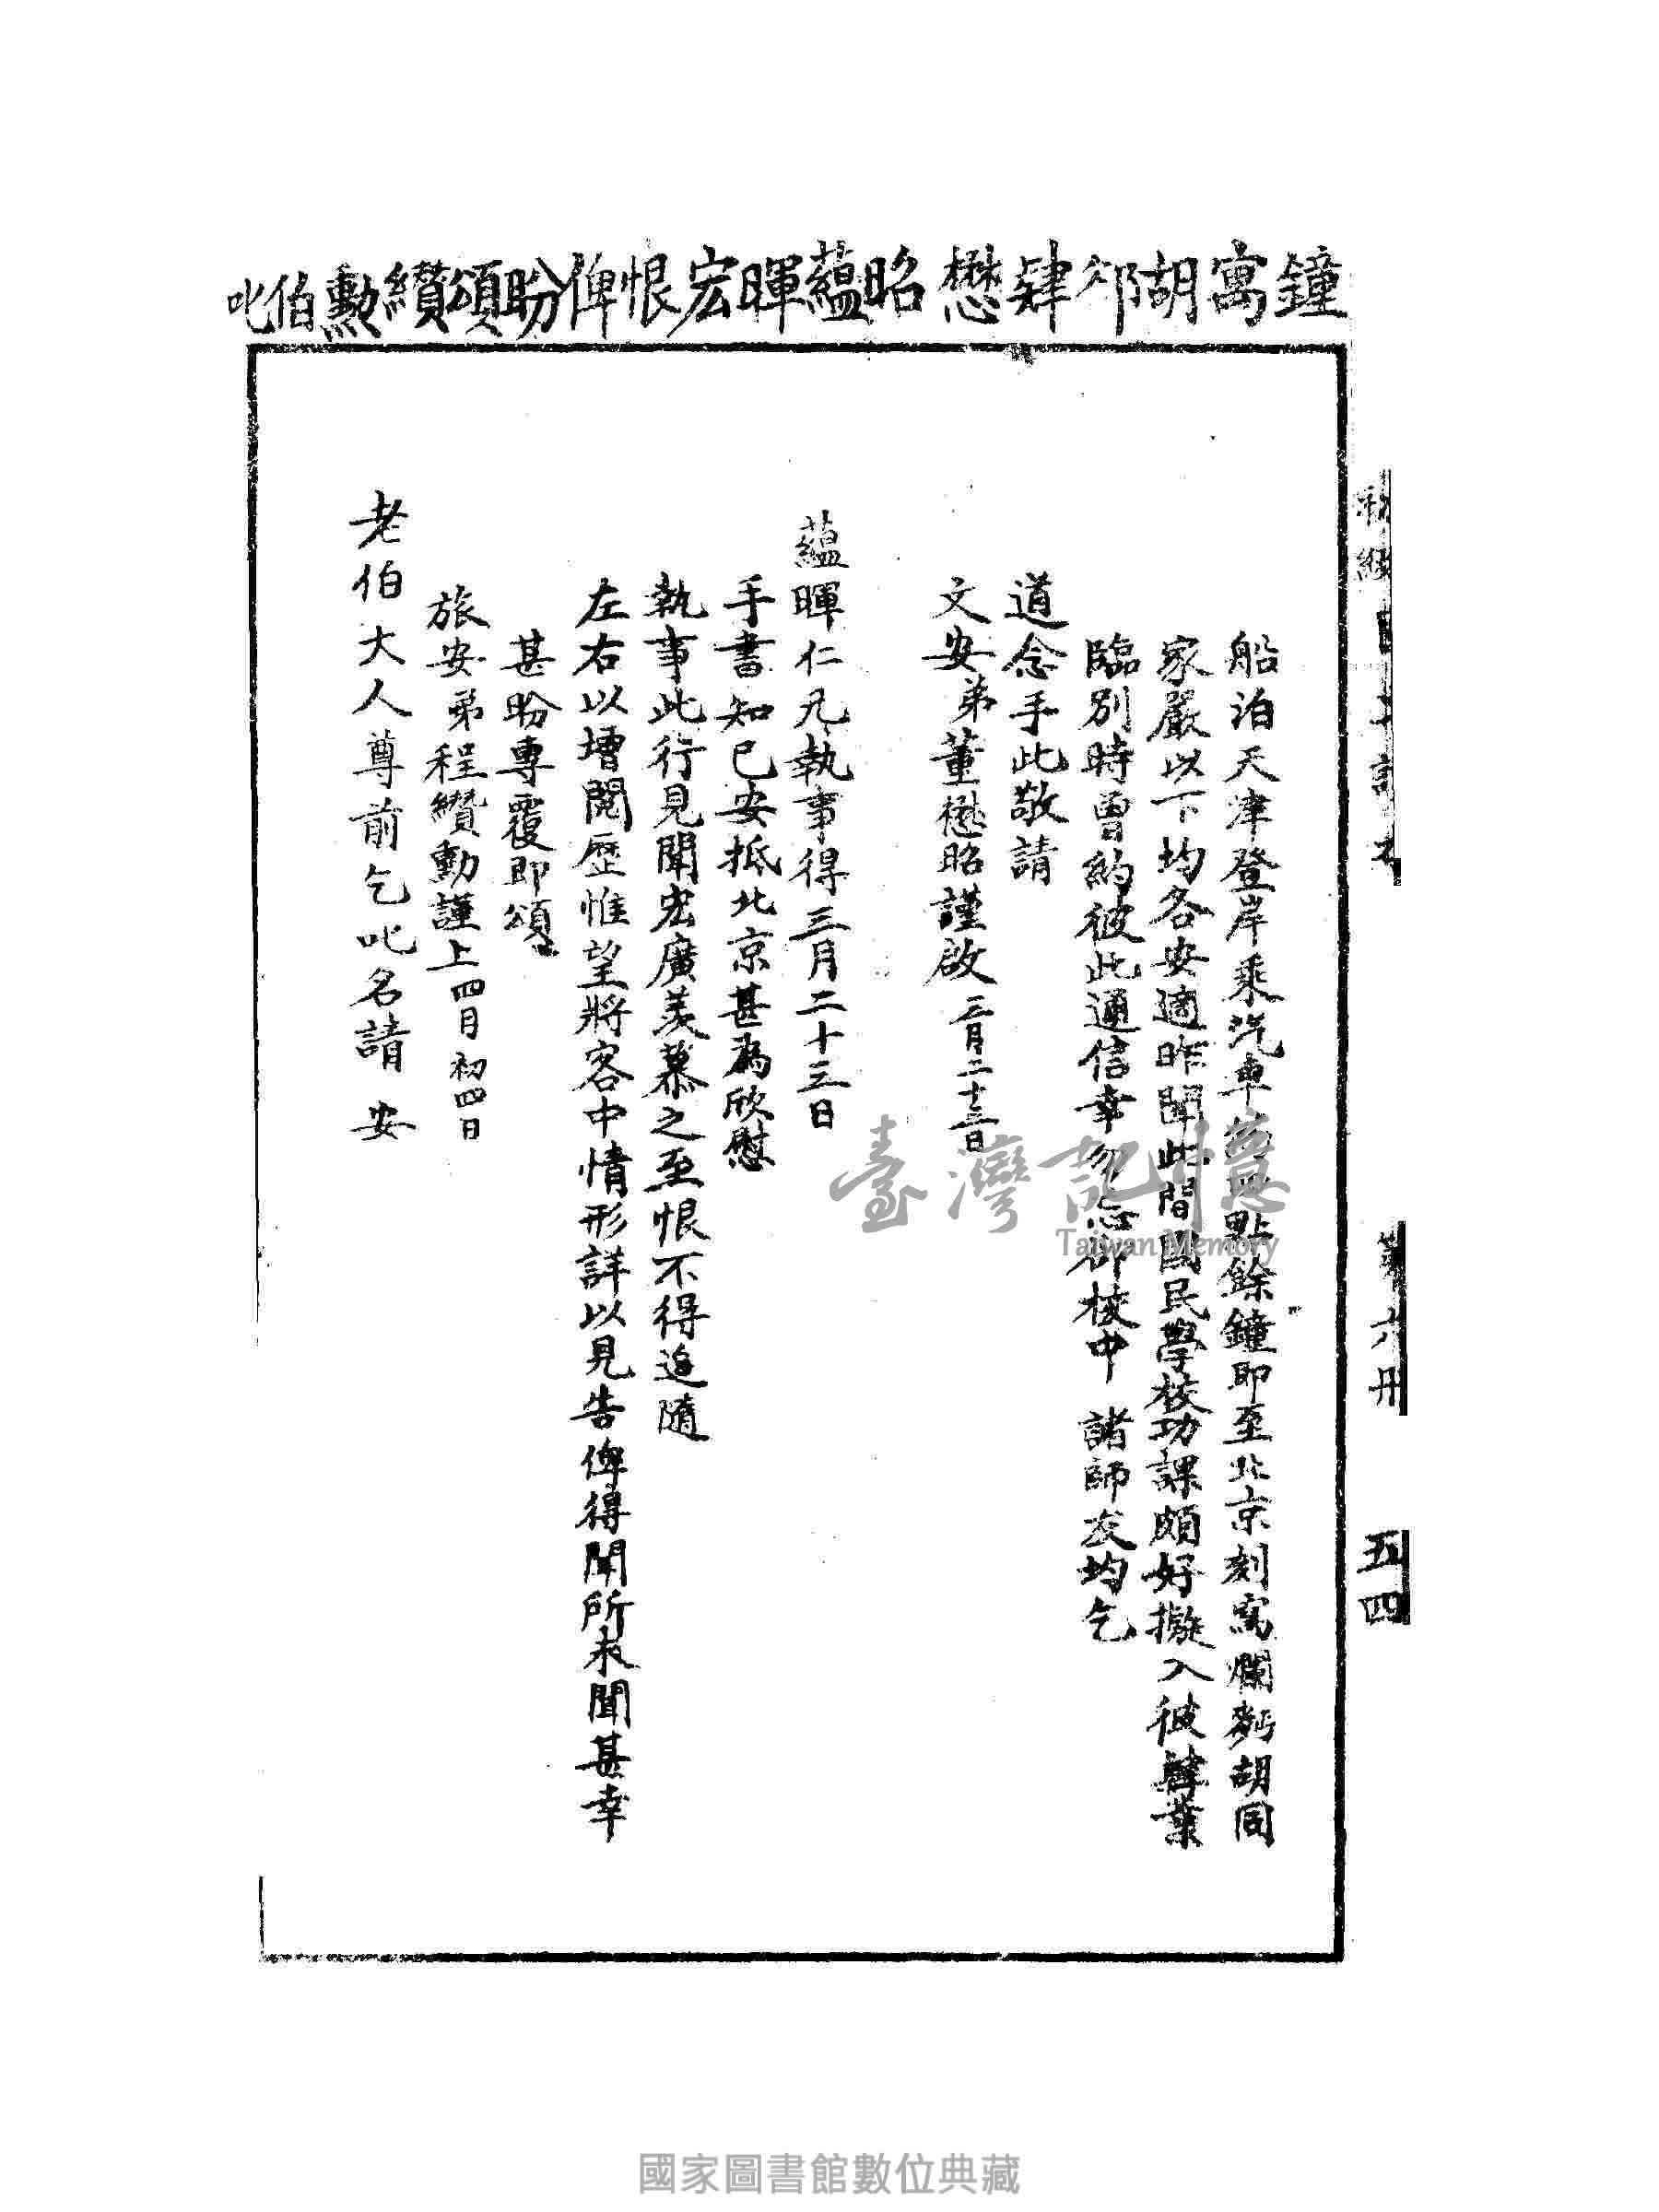 鐘寓胡祁肄懋昭蘊暉宏恨俾盼頌纘勳伯叱
船泊天津登岸乘汽車 點餘鐘即至北京刻寓爛麪胡同
家嚴以下均各安適昨聞此間國民學校功課頗好擬入彼肄業
臨別時曾約彼此通信幸勿忘卻校中 諸師友均乞
道念手此敬請
文安弟董懋昭謹啟 三月二十三日
蘊暉仁兄執事得三月二十三日
手書知已安抵北京甚為欣慰
執事此行見聞宏廣羨慕之至恨不得追隨
左右以增閱歷惟望將客中情形詳以見告俾得聞所未聞甚幸
甚盼專覆即頌
旅安弟程纘勳謹上 四月初四日
老伯大人尊前乞叱名請安
第六冊
五四
臺灣記憶
Taiwan Memory
國家圖書館數位典藏